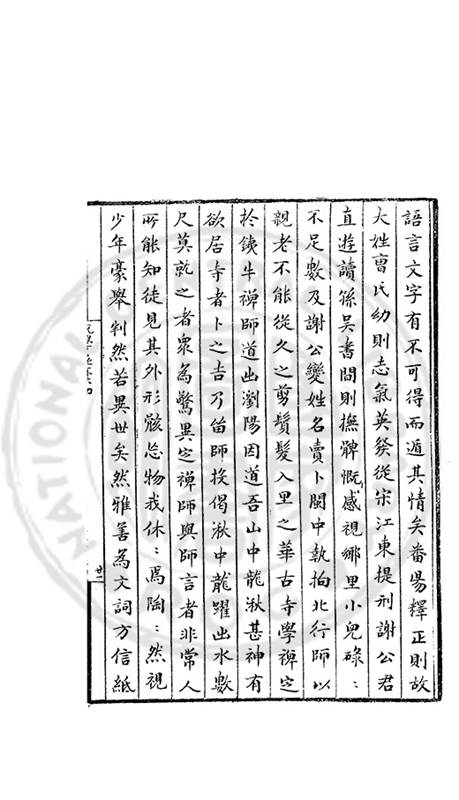 語言文字有不可得而遁其情矣番昜釋正則故
大姓曹氏幼則志氣英發從宋江東提刑謝公君
直遊讀孫吳書間則撫髀慨感視鄉里小兒碌：
不足數及謝公變姓名賣卜閩中執拘北行師以
親老不能從久之剪鬚髮入里之華古寺學禪定
扵鐵牛禪師道出瀏陽因道吾山中龍湫甚神有
欲居寺者卜之吉乃留師投偈湫中龍躍出水數
尺莫就之者衆為驚異定禪師與師言者非常人
所能知徒見其外形骸忘物我休：焉陶：然視
少年豪舉判然若異世矣然雅善為文詞方信紙
廿二
NATIONAL